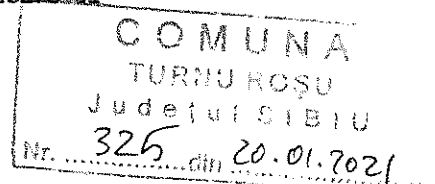 COMUNA
TURNU ROȘU
Județul SIBIU
Nr. 325 din 20.01.2021